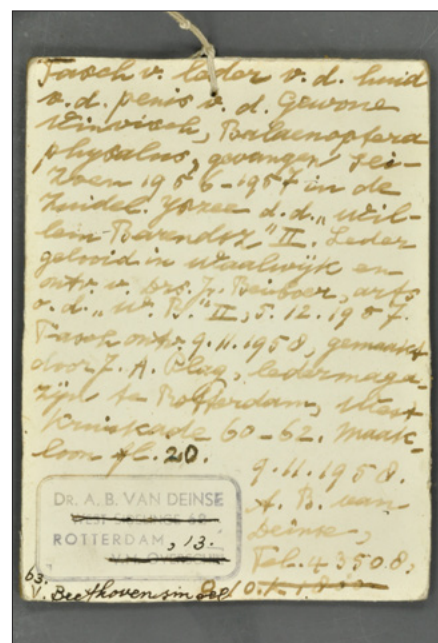 Tasch v. leder v. d. huid
v. d. penis v. d. Gewone
Vinvisch, Balaenoptera
physalus, gevangen sei-
zoen 1956-1957 in de
Zuidel. Yszee d.d. „Wil-
lem Barendsz" II. Leder
gelooid in Waalwijk en
ontv. v. Drs. J. Beisser, arts
v. d. „W. B." II, 5.12.1957.
Tasch ontv. 9.11.1958, gemaakt
door J. A. Plag, ledermaga-
zijn te Rotterdam, West
Kruiskade 60-62. Maak-
loon fl. 20.
9.11.1958.
A. B. van
Deinse,
Tel. 43508,
DR. A. B. VAN DEINSE
ROTTERDAM, 13.
63.
V. Beethovensingel